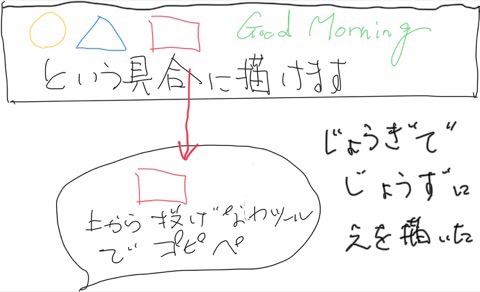 Good Morning
という具合に描けます
上から投げなわツール
で コピペ
じょうぎで
じょうずに
えを描いた